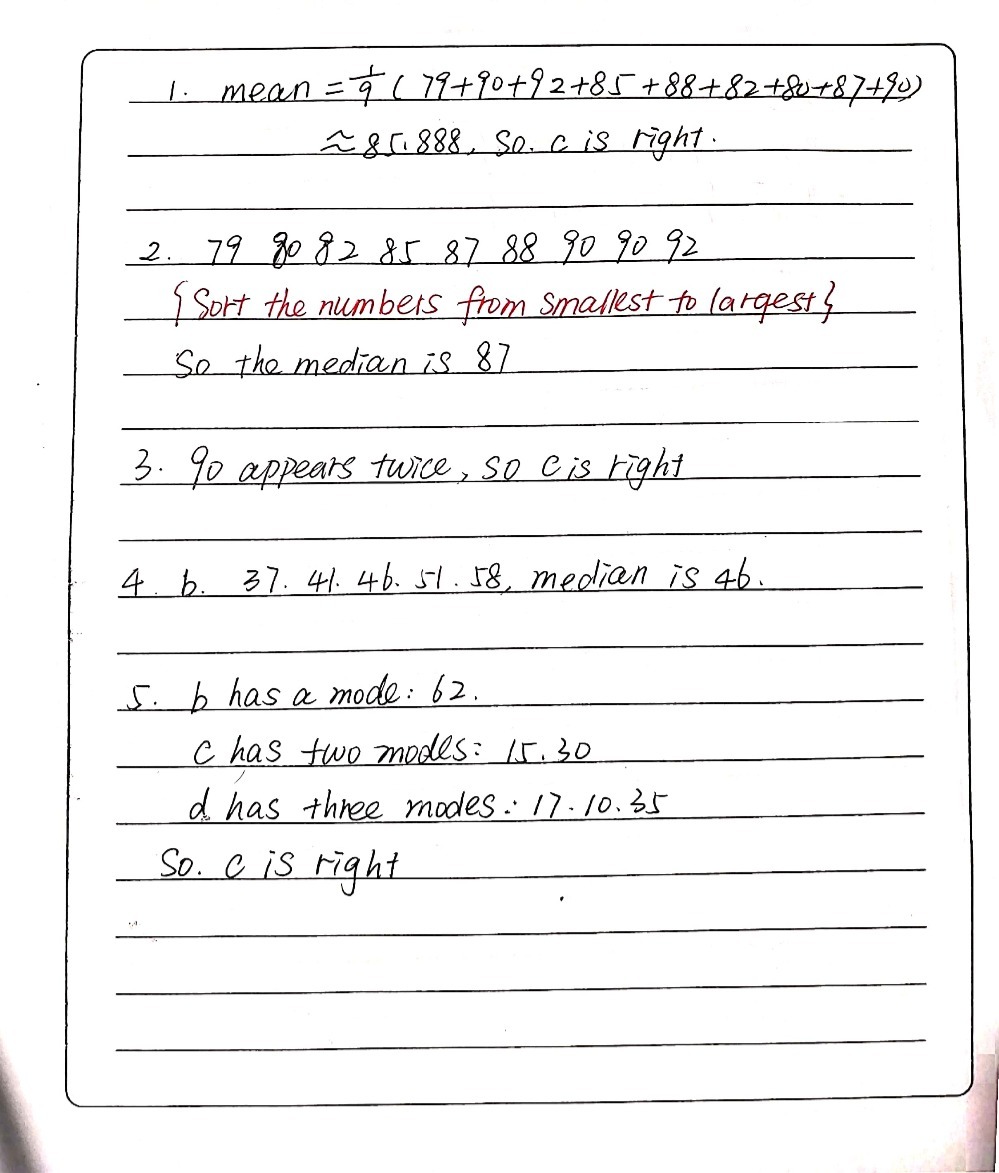 1. mean = 1/9 (79+90+92+85+88+82+80+87+90)
≈ 85.888. So. c is right.
2. 79 80 82 85 87 88 90 90 92
{Sort the numbers from smallest to largest}
So the median is 87
3. 90 appears twice, so c is right
4. b. 37. 41. 46. 51. 58, median is 46.
5. b has a mode: 62.
c has two modes: 15.30
d has three modes: 17.10.35
So. c is right